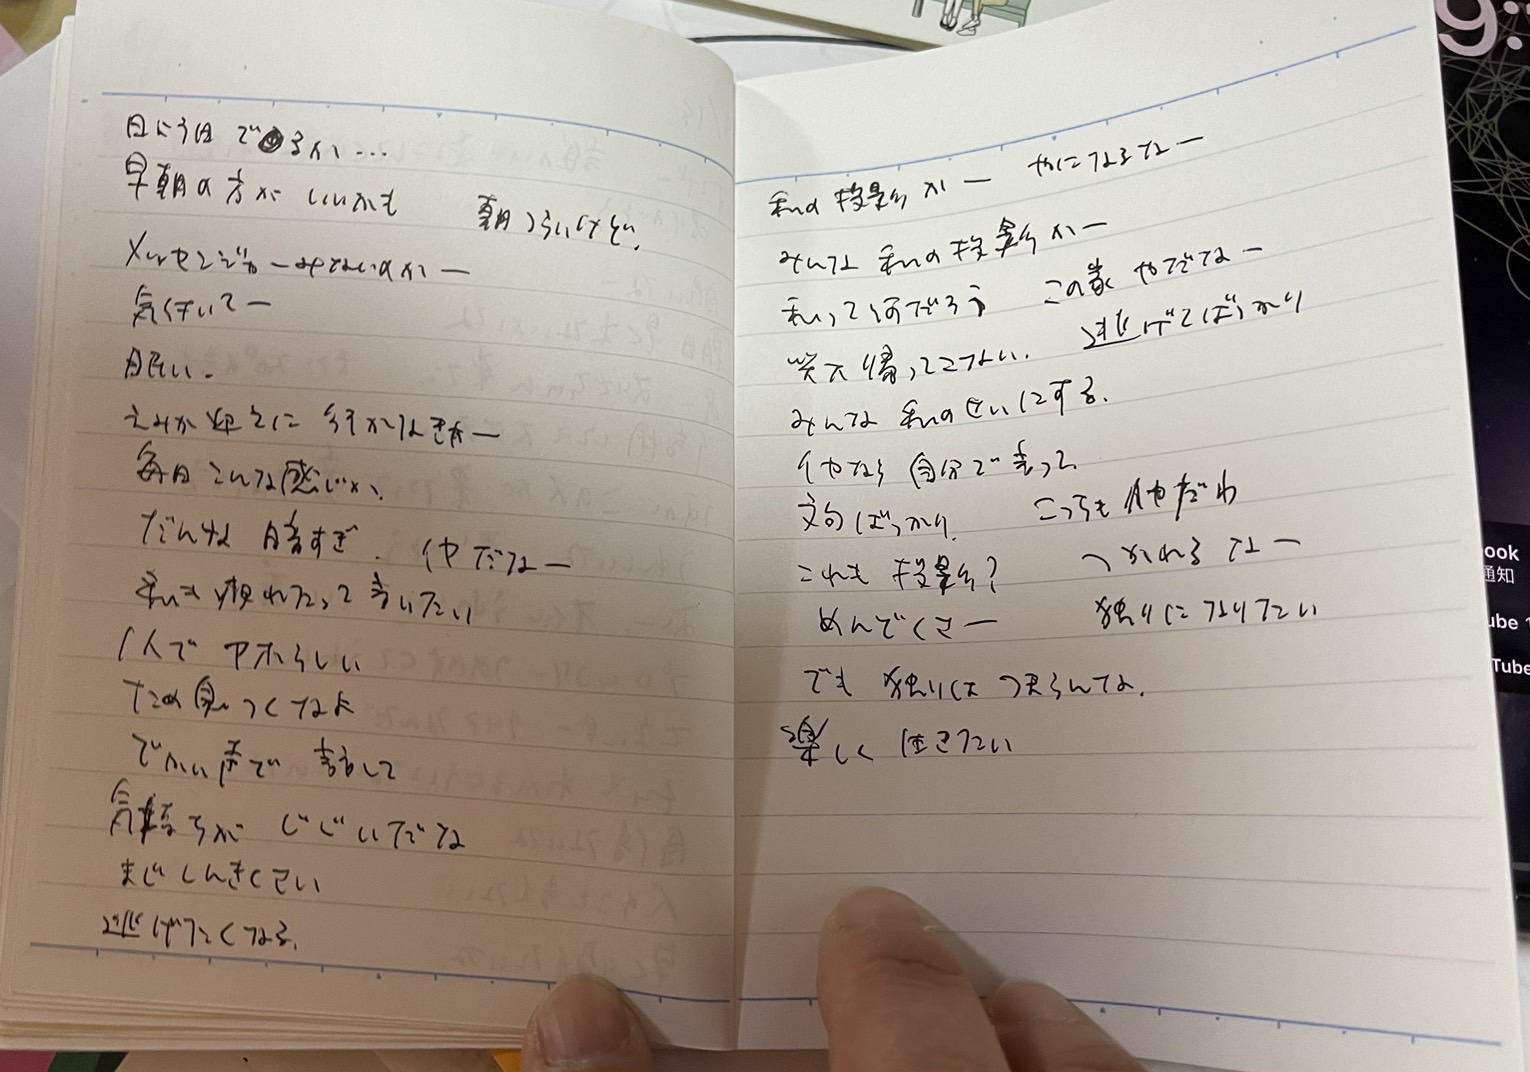 早朝の方が いいかも 朝つらいけど。
メッセンジャーみてないのかー
気付いてー
眠い。
えみか迎えに 行かなきゃー
毎日こんな感じか、
だんな 勝すぎ. イヤだなー
私も疲れたって言いたい
1人で アホらしい
ため息つくなよ
でかい声で 話して
気持ちが じじいだな
まじしんきくさい
逃げたくなる。
私の投影かー やになるなー
みんな 私の投影かー
私って何だろう この家 やだなー
笑え 帰ってこない. 逃げてばっかり
みんな 私のせいにする.
イヤなら 自分で言って.
文句ばっかり. こっちも イヤだわ
これも 投影? つかれるなー
めんでくさー 独りになりたい
でも 独りは つまらんな.
楽しく 生きたい
ook
通知
ube
Tube